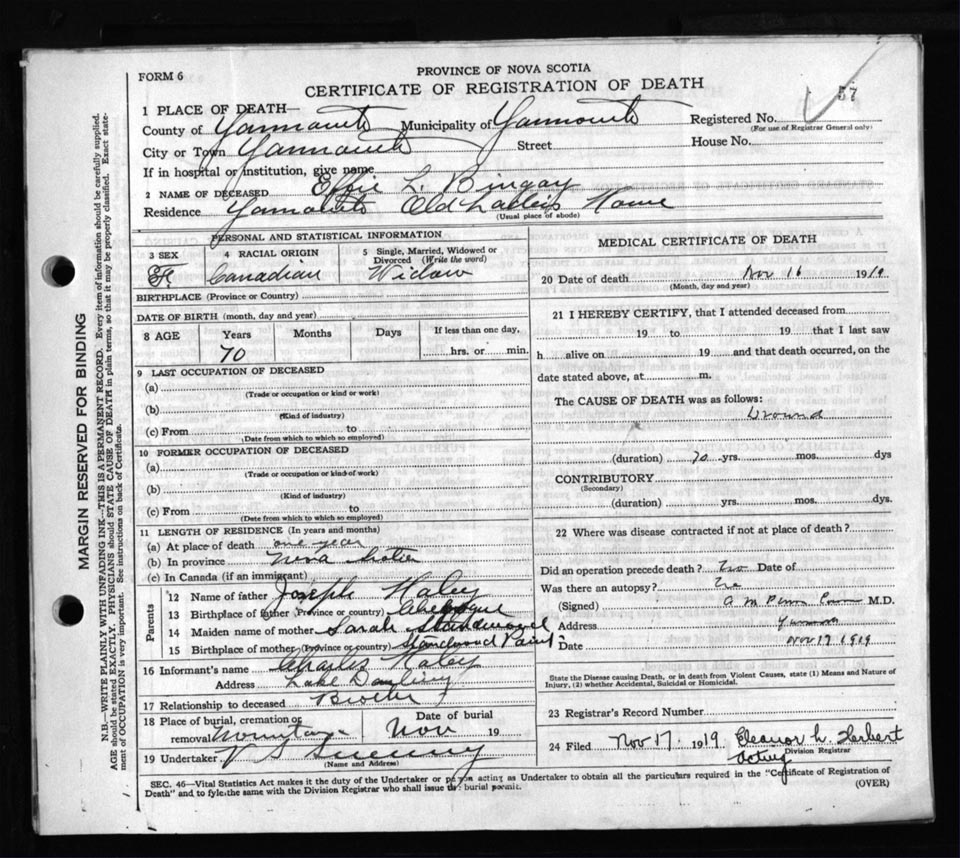 PROVINCE OF NOVA SCOTIA
FORM 6
CERTIFICATE OF REGISTRATION OF DEATH
57
1 PLACE OF DEATH—
County of Yarmouth Municipality of Yarmouth Registered No.
(For use of Registrar General only)
City or Town Yarmouth Street House No.
If in hospital or institution, give name
2 NAME OF DECEASED Effie L. Bingay
Residence Yarmouth Old Ladies Home
(Usual place of abode)
PERSONAL AND STATISTICAL INFORMATION
3 SEX 4 RACIAL ORIGIN 5 Single, Married, Widowed or Divorced (Write the word)
F Canadian Widow
BIRTHPLACE (Province or Country)
DATE OF BIRTH (month, day and year)
8 AGE Years Months Days If less than one day,
70 hrs. or min.
9 LAST OCCUPATION OF DECEASED
(a)
(Trade or occupation or kind or work)
(b)
(Kind of industry)
(c) From to
(Date from which to which so employed)
10 FORMER OCCUPATION OF DECEASED
(a)
(Trade or occupation or kind of work)
(b)
(Kind of industry)
(c) From to
(Date from which to which so employed)
11 LENGTH OF RESIDENCE (In years and months)
(a) At place of death one year
(b) In province Nova Scotia
(c) In Canada (if an immigrant)
Parents
12 Name of father Joseph Haley
13 Birthplace of father (Province or country) Chebogue
14 Maiden name of mother Sarah Standwood
15 Birthplace of mother (Province or country) Standwood Point
16 Informant's name Charles Haley
Address Lake Darling
17 Relationship to deceased Brother
18 Place of burial, cremation or removal Mountain Date of burial Nov 19
19 Undertaker V S Sweeny
(Name and Address)
MEDICAL CERTIFICATE OF DEATH
20 Date of death Nov 16 1919
(Month, day and year)
21 I HEREBY CERTIFY, that I attended deceased from
19 to 19 that I last saw
h alive on 19 and that death occurred, on the
date stated above, at m.
The CAUSE OF DEATH was as follows:
(duration) 70 yrs. mos. dys
CONTRIBUTORY
(Secondary)
(duration) yrs. mos. dys.
22 Where was disease contracted if not at place of death?
Did an operation precede death? No Date of
Was there an autopsy? No
(Signed) M.D.
Address Yarmouth
Date Nov 17 1919
State the Disease causing Death, or in death from Violent Causes, state (1) Means and Nature of
Injury, (2) whether Accidental, Suicidal or Homicidal.
23 Registrar's Record Number
24 Filed Nov 17. 1919. Eleanor h. Herbert
Division Registrar
Acting
SEC. 46—Vital Statistics Act makes it the duty of the Undertaker or person acting as Undertaker to obtain all the particulars required in the "Certificate of Registration of
Death" and to fyle the same with the Division Registrar who shall issue the burial permit.
(OVER)
MARGIN RESERVED FOR BINDING
N.B.—WRITE PLAINLY WITH UNFADING INK—THIS IS A PERMANENT RECORD. Every item of information should be carefully supplied.
AGE should be stated EXACTLY. PHYSICIANS should STATE CAUSE OF DEATH in plain terms, so that it may be properly classified. Exact state-
ment of OCCUPATION is very important. See instructions on back of Certificate.